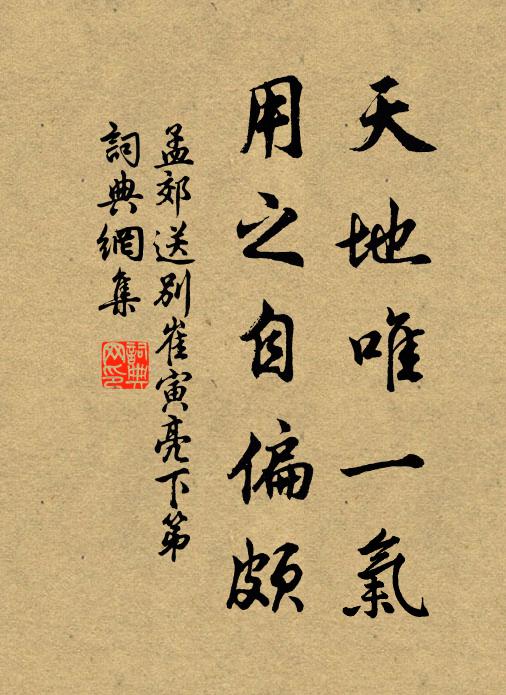 天地唯一氣
用之自偏頗
孟郊送別崔寅亮下第
詞典網集
詞典網印